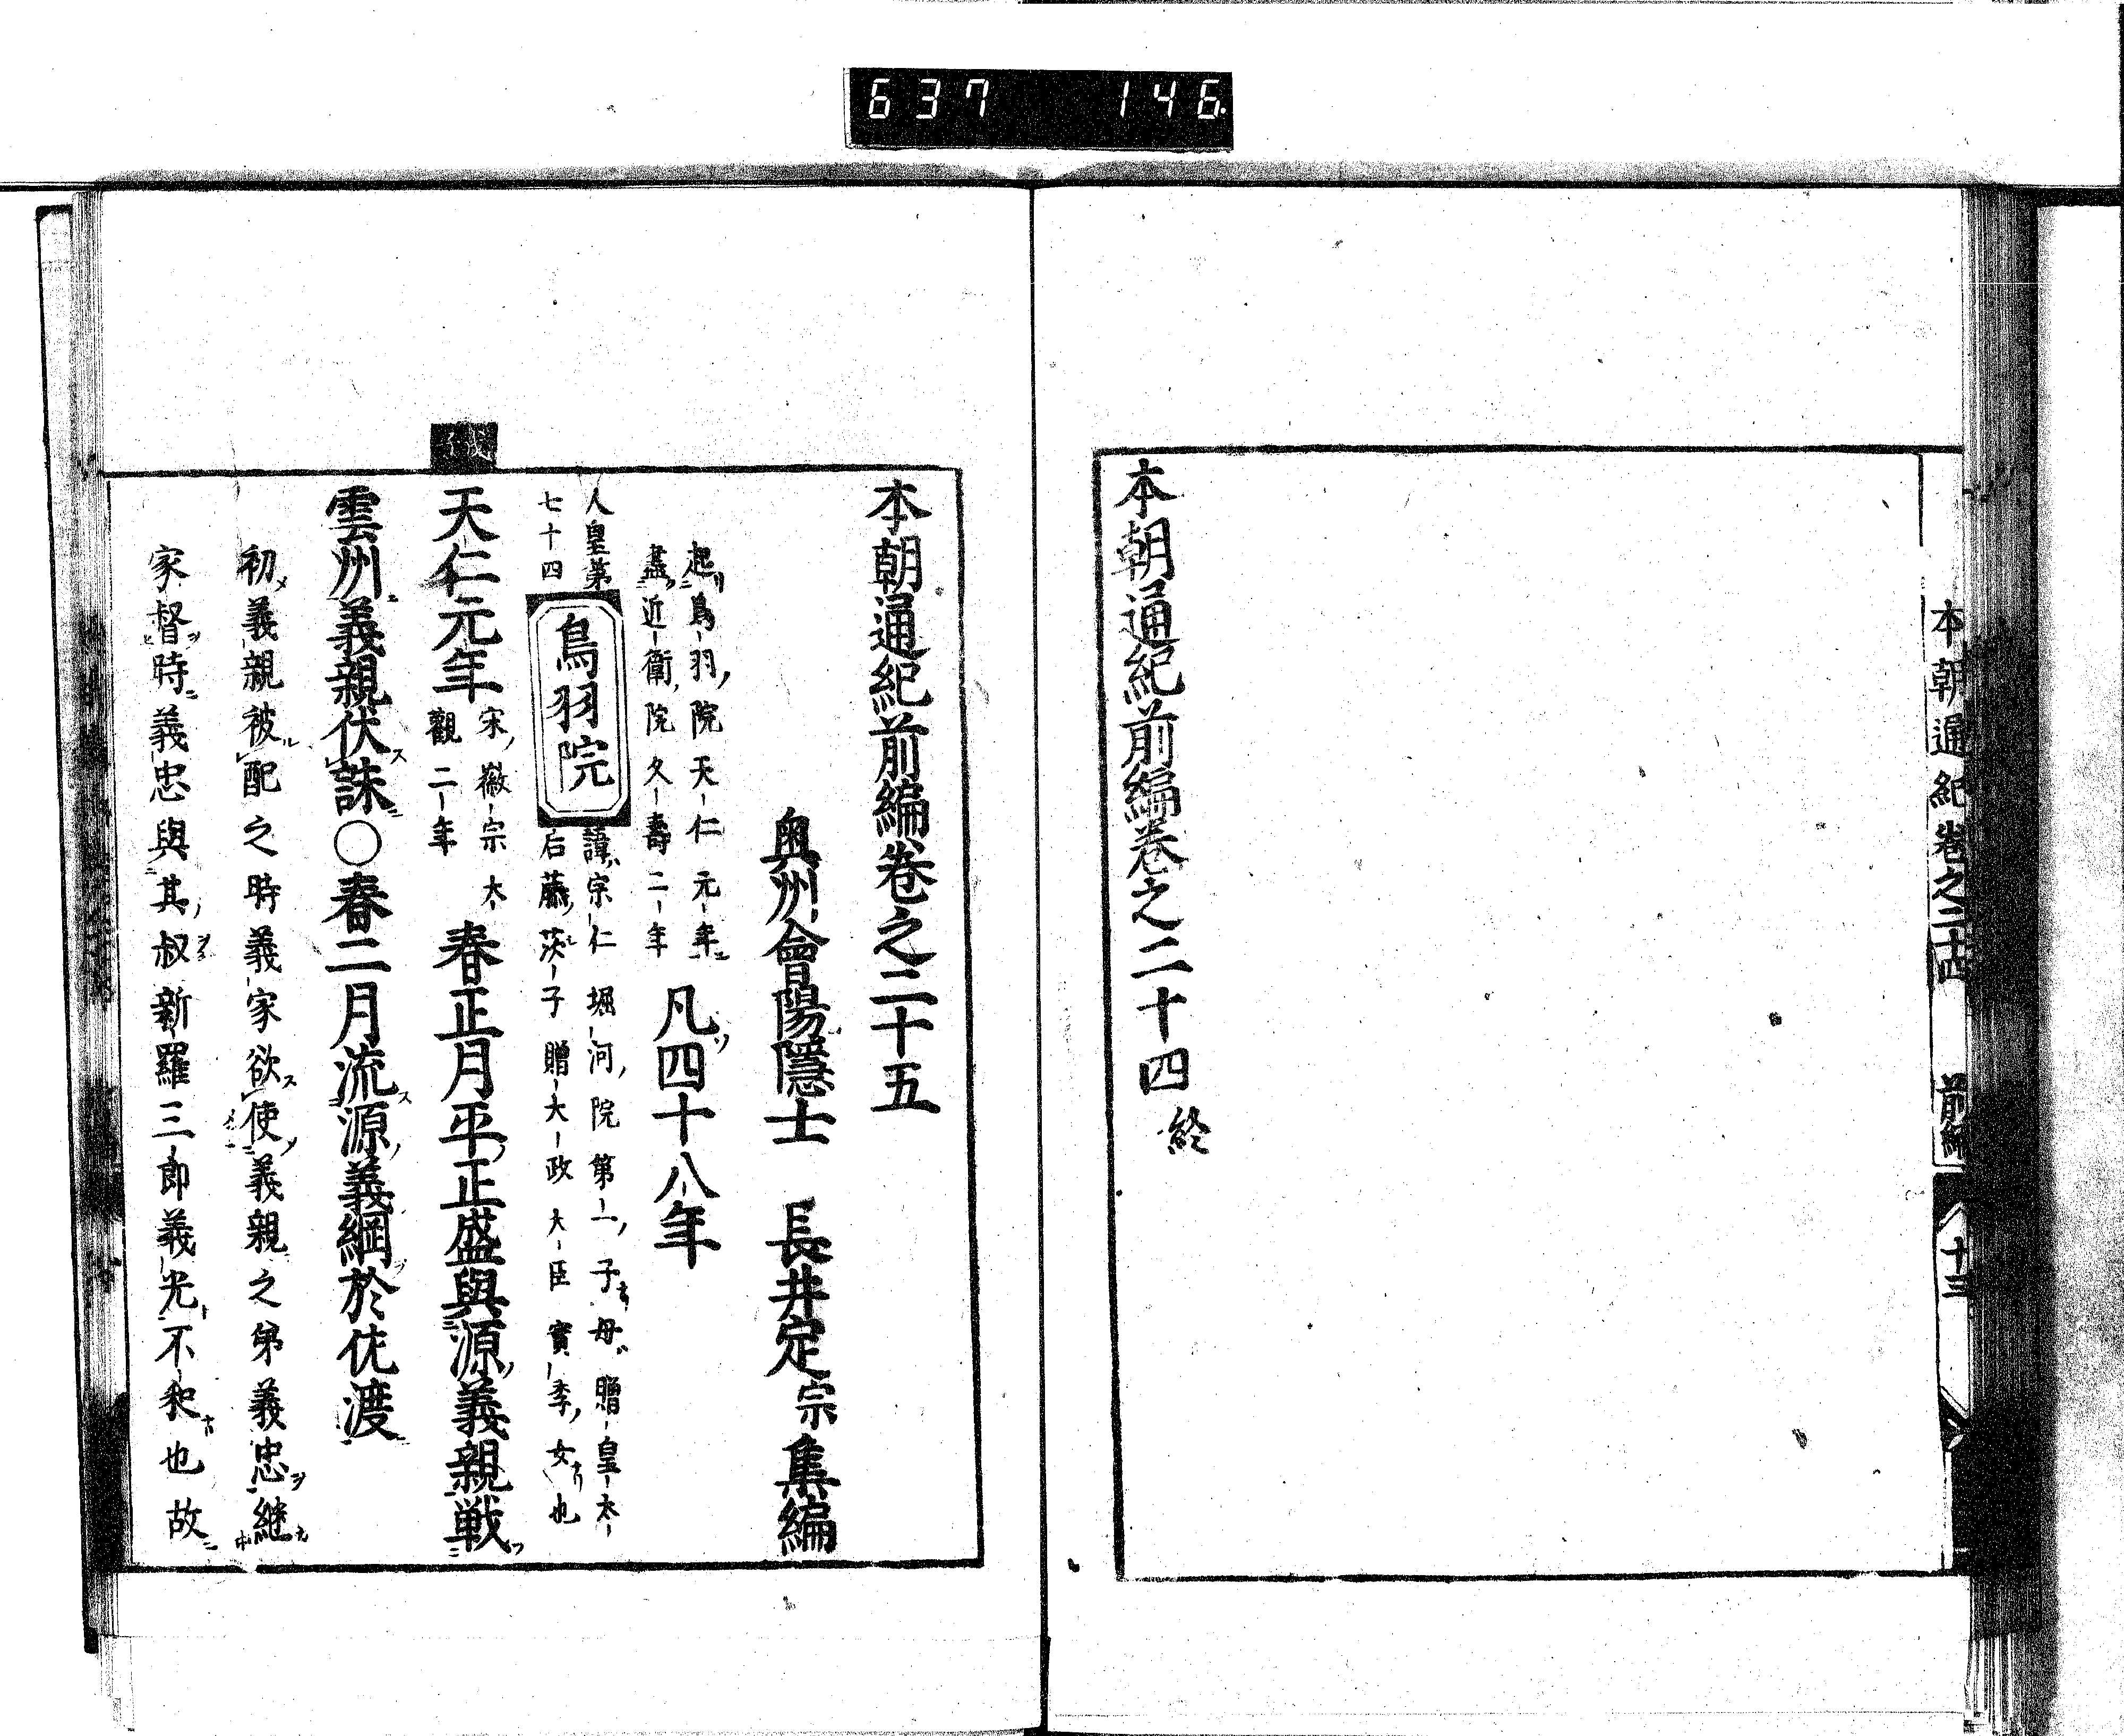 637 146
本朝通紀卷之二十四 前編 十三
本朝通紀前編卷之二十四 終
本朝通紀前編卷之二十五
奧州會陽隱士 長井定宗集編
起鳥羽院天仁元年
盡近衛院久壽二年 凡四十八年
人皇第
七十四
鳥羽院
諱宗仁堀河院第一子母贈皇太
后藤茨子贈大政大臣實季女也
戊子
天仁元年 宋徽宗大
觀二年 春正月平正盛與源義親戰
雲州義親伏誅〇春二月流源義綱於佐渡
初義親被配之時義家欲使義親之弟義忠継
家督時義忠與其叔新羅三郎義光不和也故